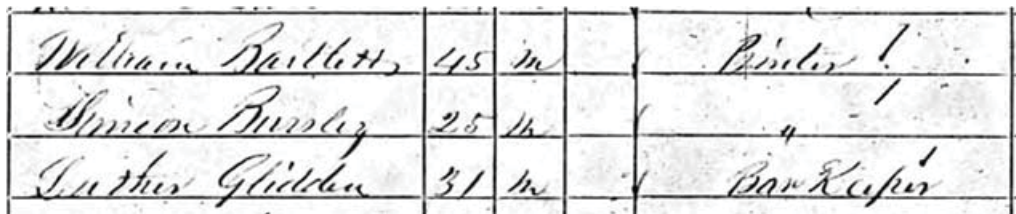 William Bartlett 45 m Printer
Simeon Bursley 25 m "
Luther Glidden 31 m Bar Keeper